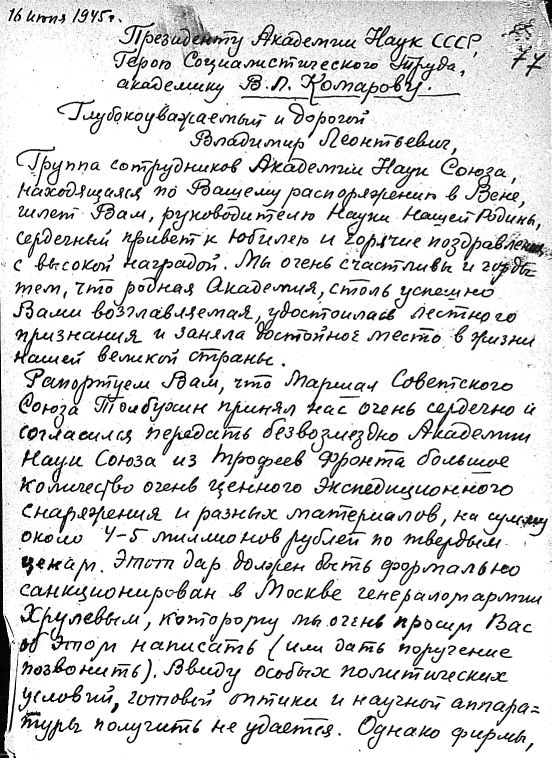 16 июня 1945г.
77
Президенту Академии Наук СССР,
Герою Социалистического Труда,
академику В. Л. Комарову.
Глубокоуважаемый и дорогой
Владимир Леонтьевич,
Группа сотрудников Академии Наук Союза,
находящаяся по Вашему распоряжению в Вене,
шлет Вам, руководителю Науки нашей Родины,
сердечный привет к юбилею и горячие поздравления
с высокой наградой. Мы очень счастливы и горды
тем, что родная Академия, столь успешно
Вами возглавляемая, удостоилась лестного
признания и заняла достойное место в жизни
нашей великой страны.
Рапортуем Вам, что Маршал Советского
Союза Толбухин принял нас очень сердечно и
согласился передать безвозмездно Академии
Наук Союза из трофеев Фронта большое
количество очень ценного экспедиционного
снаряжения и разных материалов, на сумму
около 4-5 миллионов рублей по твердым
ценам. Этот дар должен быть формально
санкционирован в Москве генералом армии
Хрулевым, которому мы очень просим Вас
об этом написать (или дать поручение
позвонить). Ввиду особых политических
условий, готовой оптики и научной аппара=
туры получить не удается. Однако фирмы,